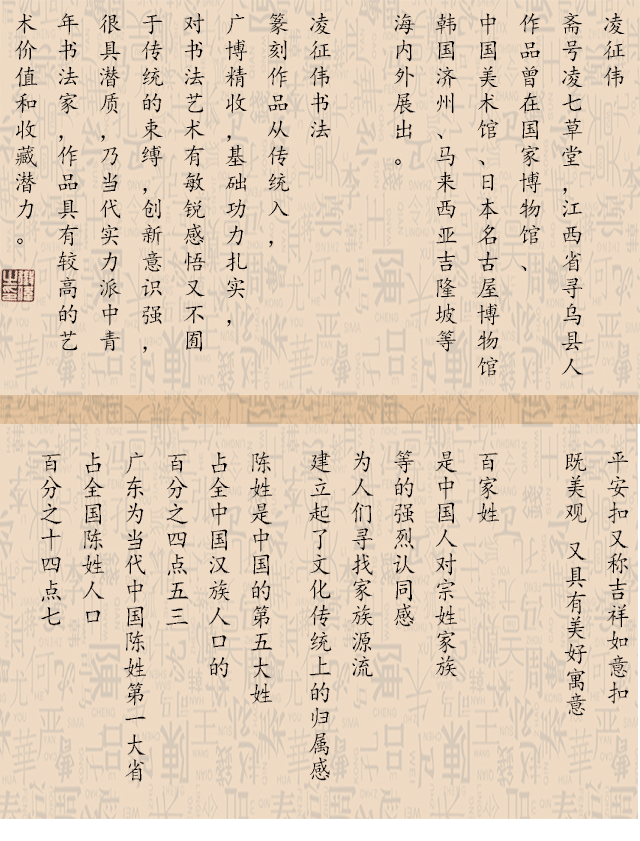 凌征伟
斋号凌七草堂，江西省寻乌县人
作品曾在国家博物馆、
中国美术馆、日本名古屋博物馆
韩国济州、马来西亚吉隆坡等
海内外展出。
凌征伟书法
篆刻作品从传统入，
广博精收，基础功力扎实，
对书法艺术有敏锐感悟又不囿
于传统的束缚，创新意识强，
很具潜质，乃当代实力派中青
年书法家，作品具有较高的艺
术价值和收藏潜力。
平安扣又称吉祥如意扣
既美观 又具有美好寓意
百家姓
是中国人对宗姓家族
等的强烈认同感
为人们寻找家族源流
建立起了文化传统上的归属感
陈姓是中国的第五大姓
占全中国汉族人口的
百分之四点五三
广东为当代中国陈姓第一大省
占全国陈姓人口
百分之十四点七